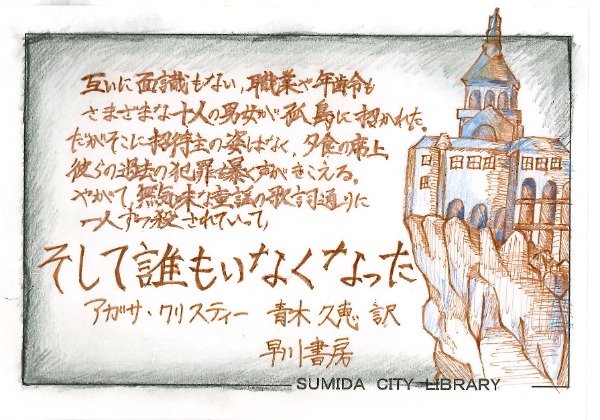 互いに面識もない、職業や年齢も
さまざまな十人の男女が孤島に招かれた。
だがそこに招待主の姿はなく、夕食の席上、
彼らの過去の犯罪を暴く声がきこえる。
やがて、無気味な童謡の歌詞通りに
一人ずつ殺されていって、
そして誰もいなくなった
アガサ・クリスティー 青木久恵 訳
早川書房
SUMIDA CITY LIBRARY